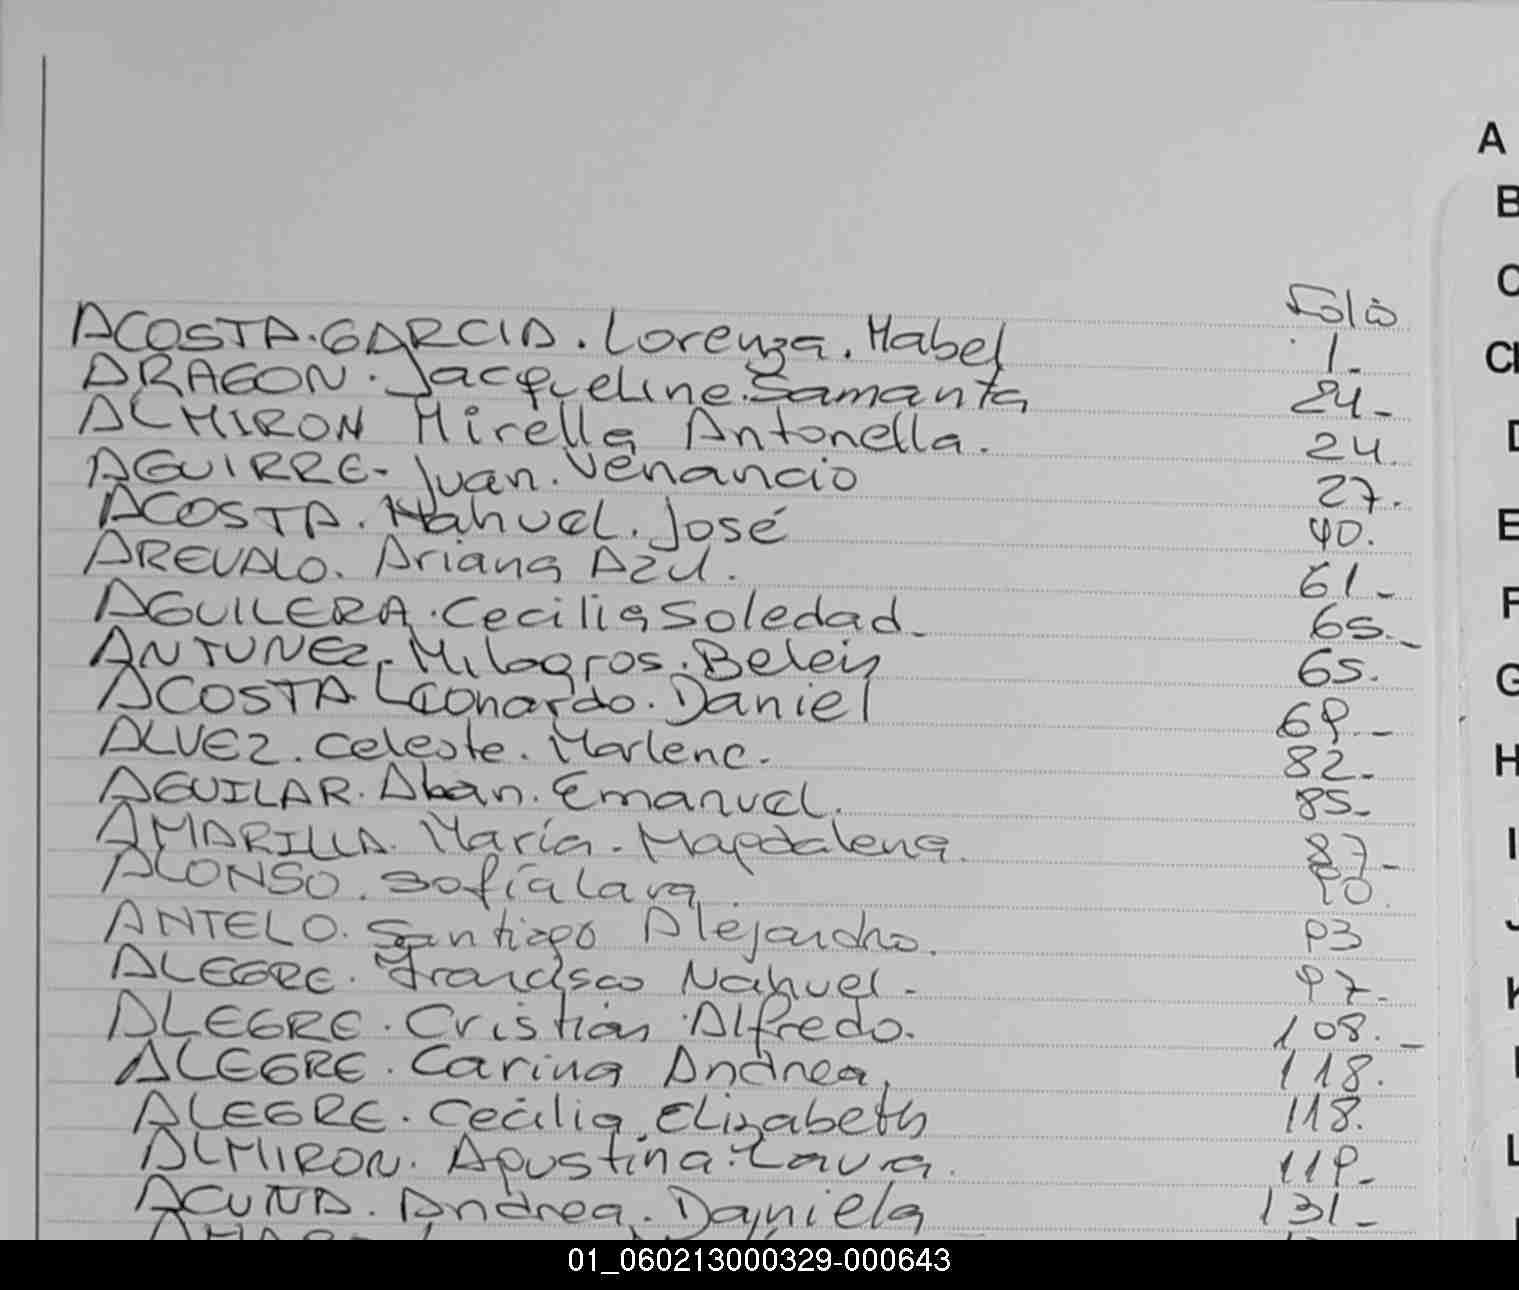 Folio
ACOSTA. GARCIA. Lorenza. Mabel 1.-
ARAGON. Jacqueline. Samanta 24-
ALMIRON Mirella Antonella. 24.
AGUIRRE- Juan. Venancio 27.
ACOSTA. Nahuel. José 40.
AREVALO. Ariana Azul. 61-
AGUILERA. Cecilia Soledad- 65.-
ANTUNEZ. Milagros. Belén 65.
ACOSTA Leonardo. Daniel 69.-
ALVEZ. Celeste. Marlene. 82.
AGUILAR. Alan. Emanuel. 85-
AMARILLA. María. Magdalena. 87-
ALONSO. Sofía Lara. 90.
ANTELO. Santiago Alejandro. 93
ALEGRE. Francisco Nahuel. 97-
ALEGRE. Cristian Alfredo. 108.-
ALEGRE. Carina Andrea. 118.
ALEGRE. Cecilia Elizabeth 118.
ALMIRON. Agustina. Laura. 119-
ACUÑA. Andrea. Daniela 131-
A
B
C
D
E
F
G
H
I
J
K
L
01_060213000329-000643